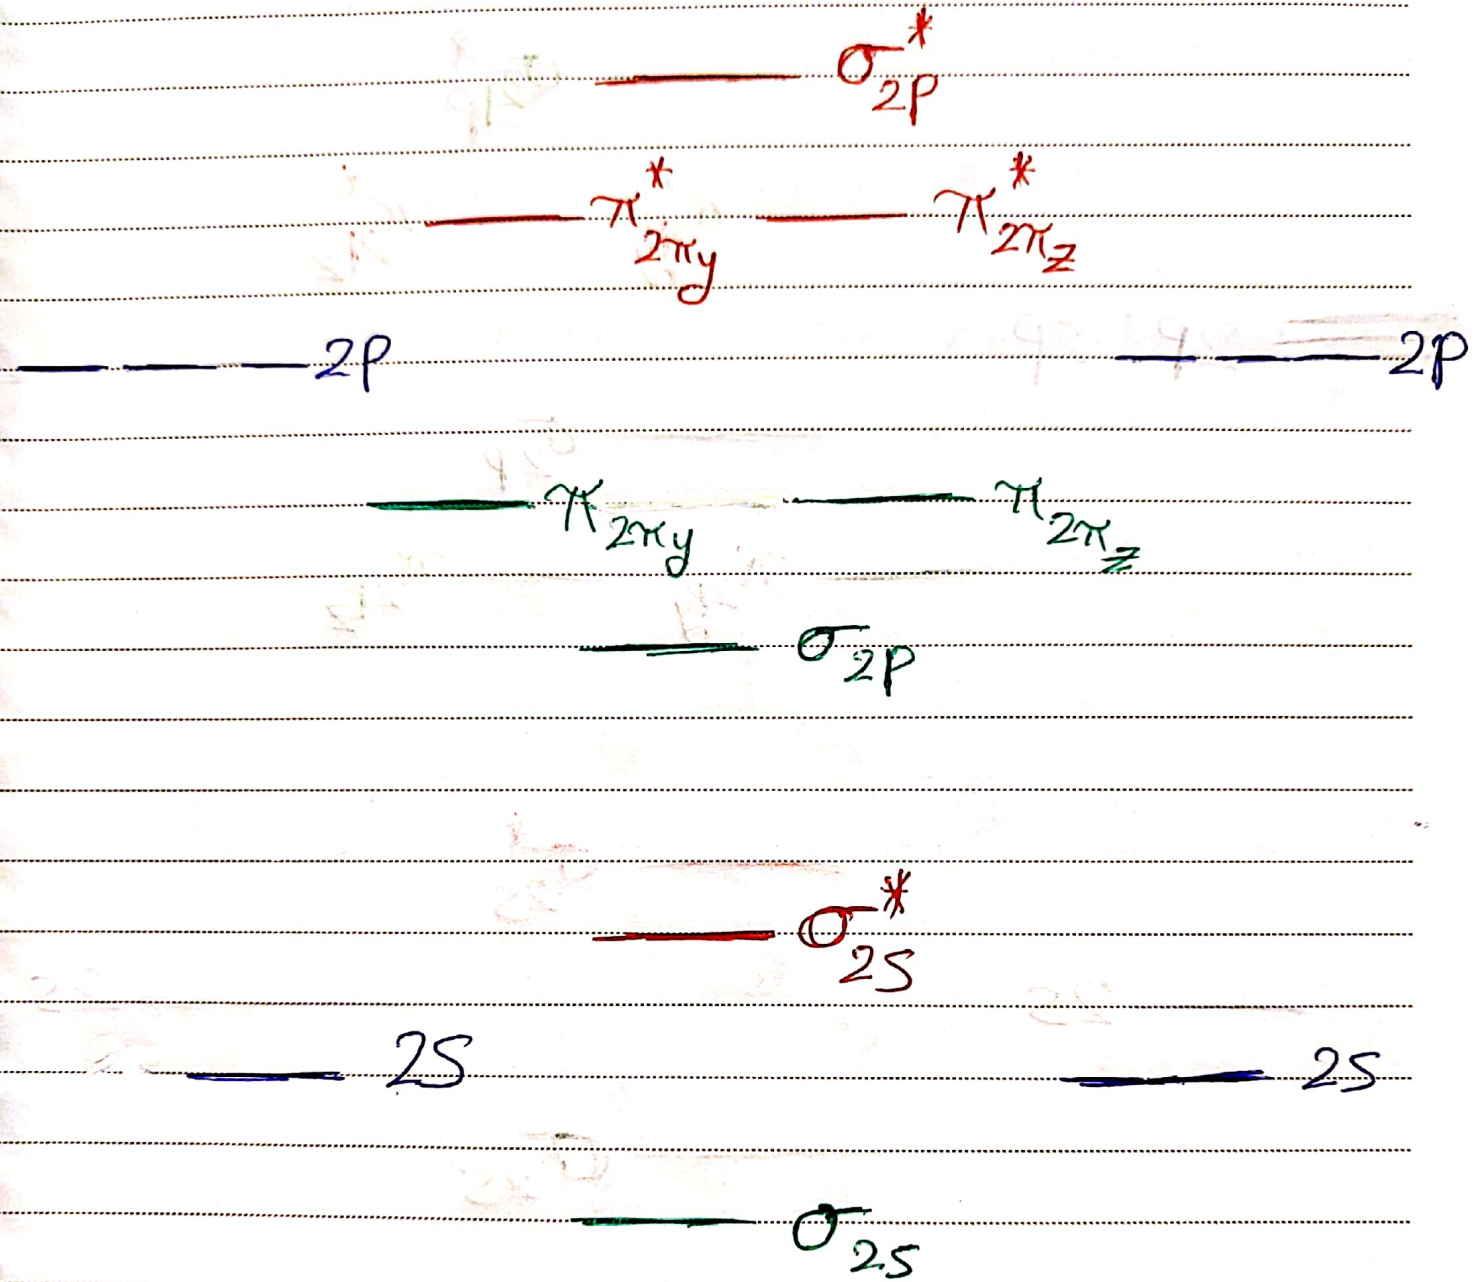 σ*2P
π*2πy π*2πz
2P 2P
π2πy π2πz
σ2P
σ*2S
2S 2S
σ2S